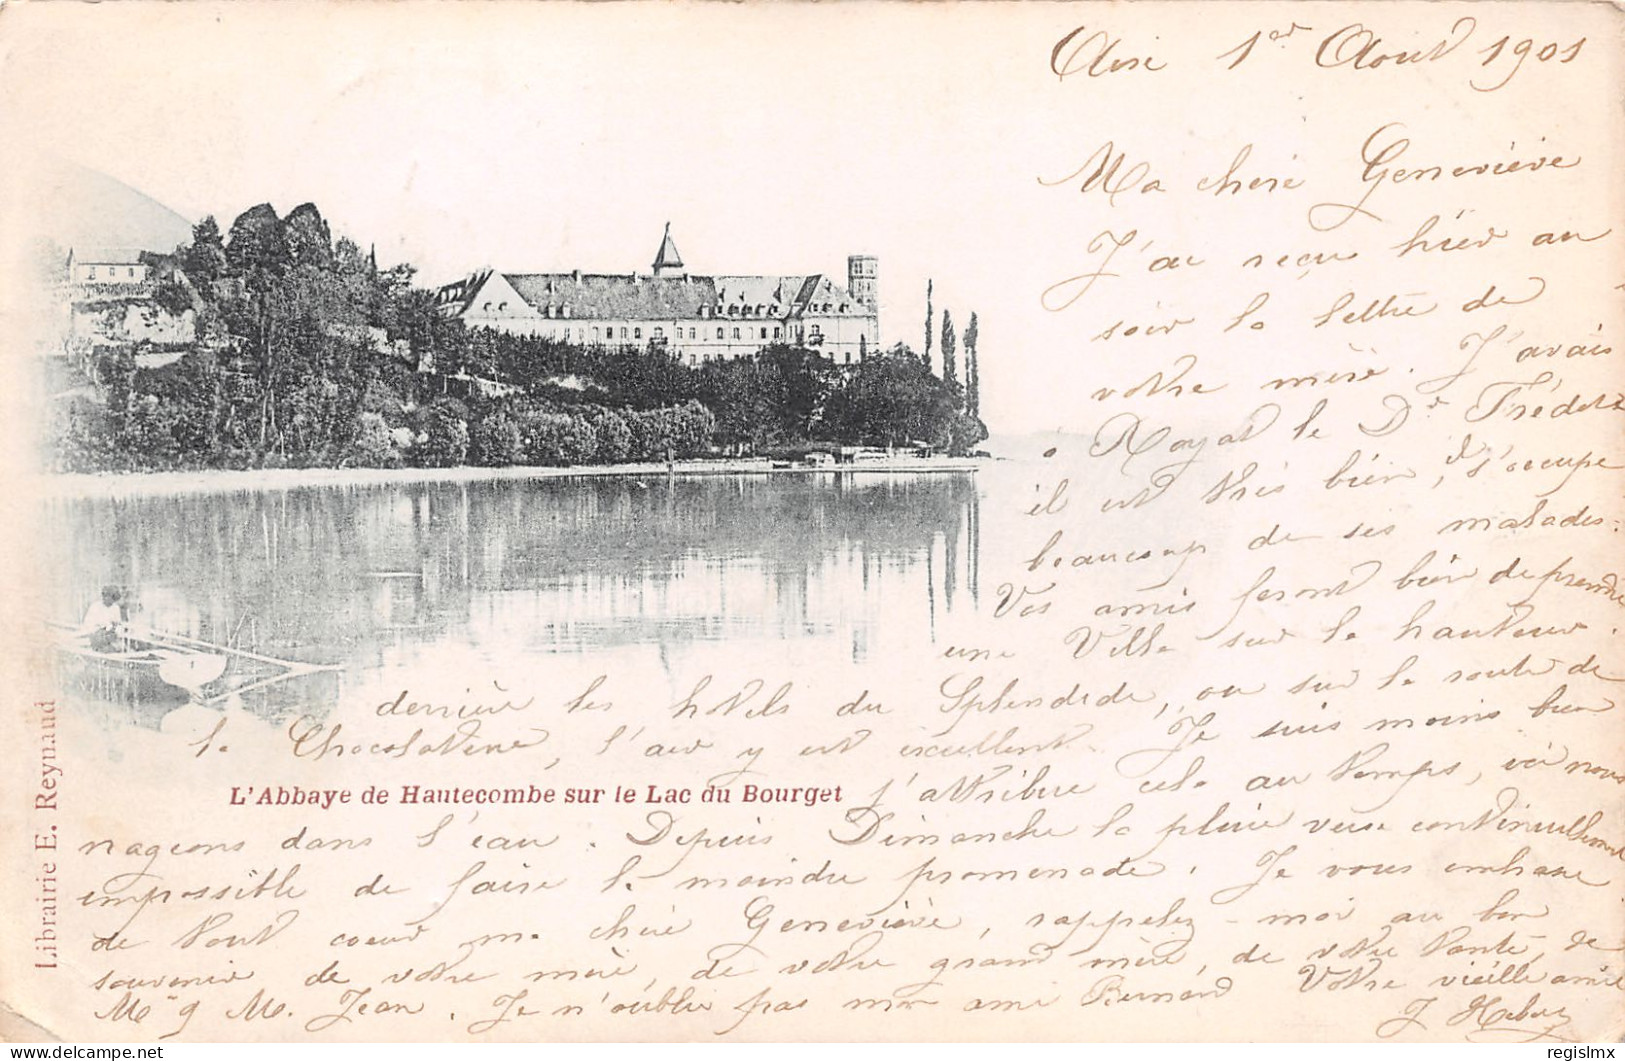 Aix 1er Août 1901
Ma chère Geneviève
J'ai reçu hier au
soir la lettre de
votre mère. J'avais
à Royat le Dr Frédet
il est très bien, et s'occupe
beaucoup de ses malades.
Vos amis feront bien de prendre
une Villa sur la hauteur
derrière les hôtels du Splendide, ou sur la route de
la Chocolatine, l'air y est excellent. Je suis moins bien
L'Abbaye de Hautecombe sur le Lac du Bourget
j'attribue cela au temps, ici nous
nageons dans l'eau. Depuis Dimanche la pluie verse continuellement
impossible de faire la moindre promenade. Je vous embrasse
de tout coeur ma chère Geneviève, rappelez-moi au bon
souvenir de votre mère, de votre grand mère, de votre tante, de
M. Jean. Je n'oublie pas mon ami Bernard Votre vieille amie
J
Librairie E. Reynaud
regislmx
delcampe.net